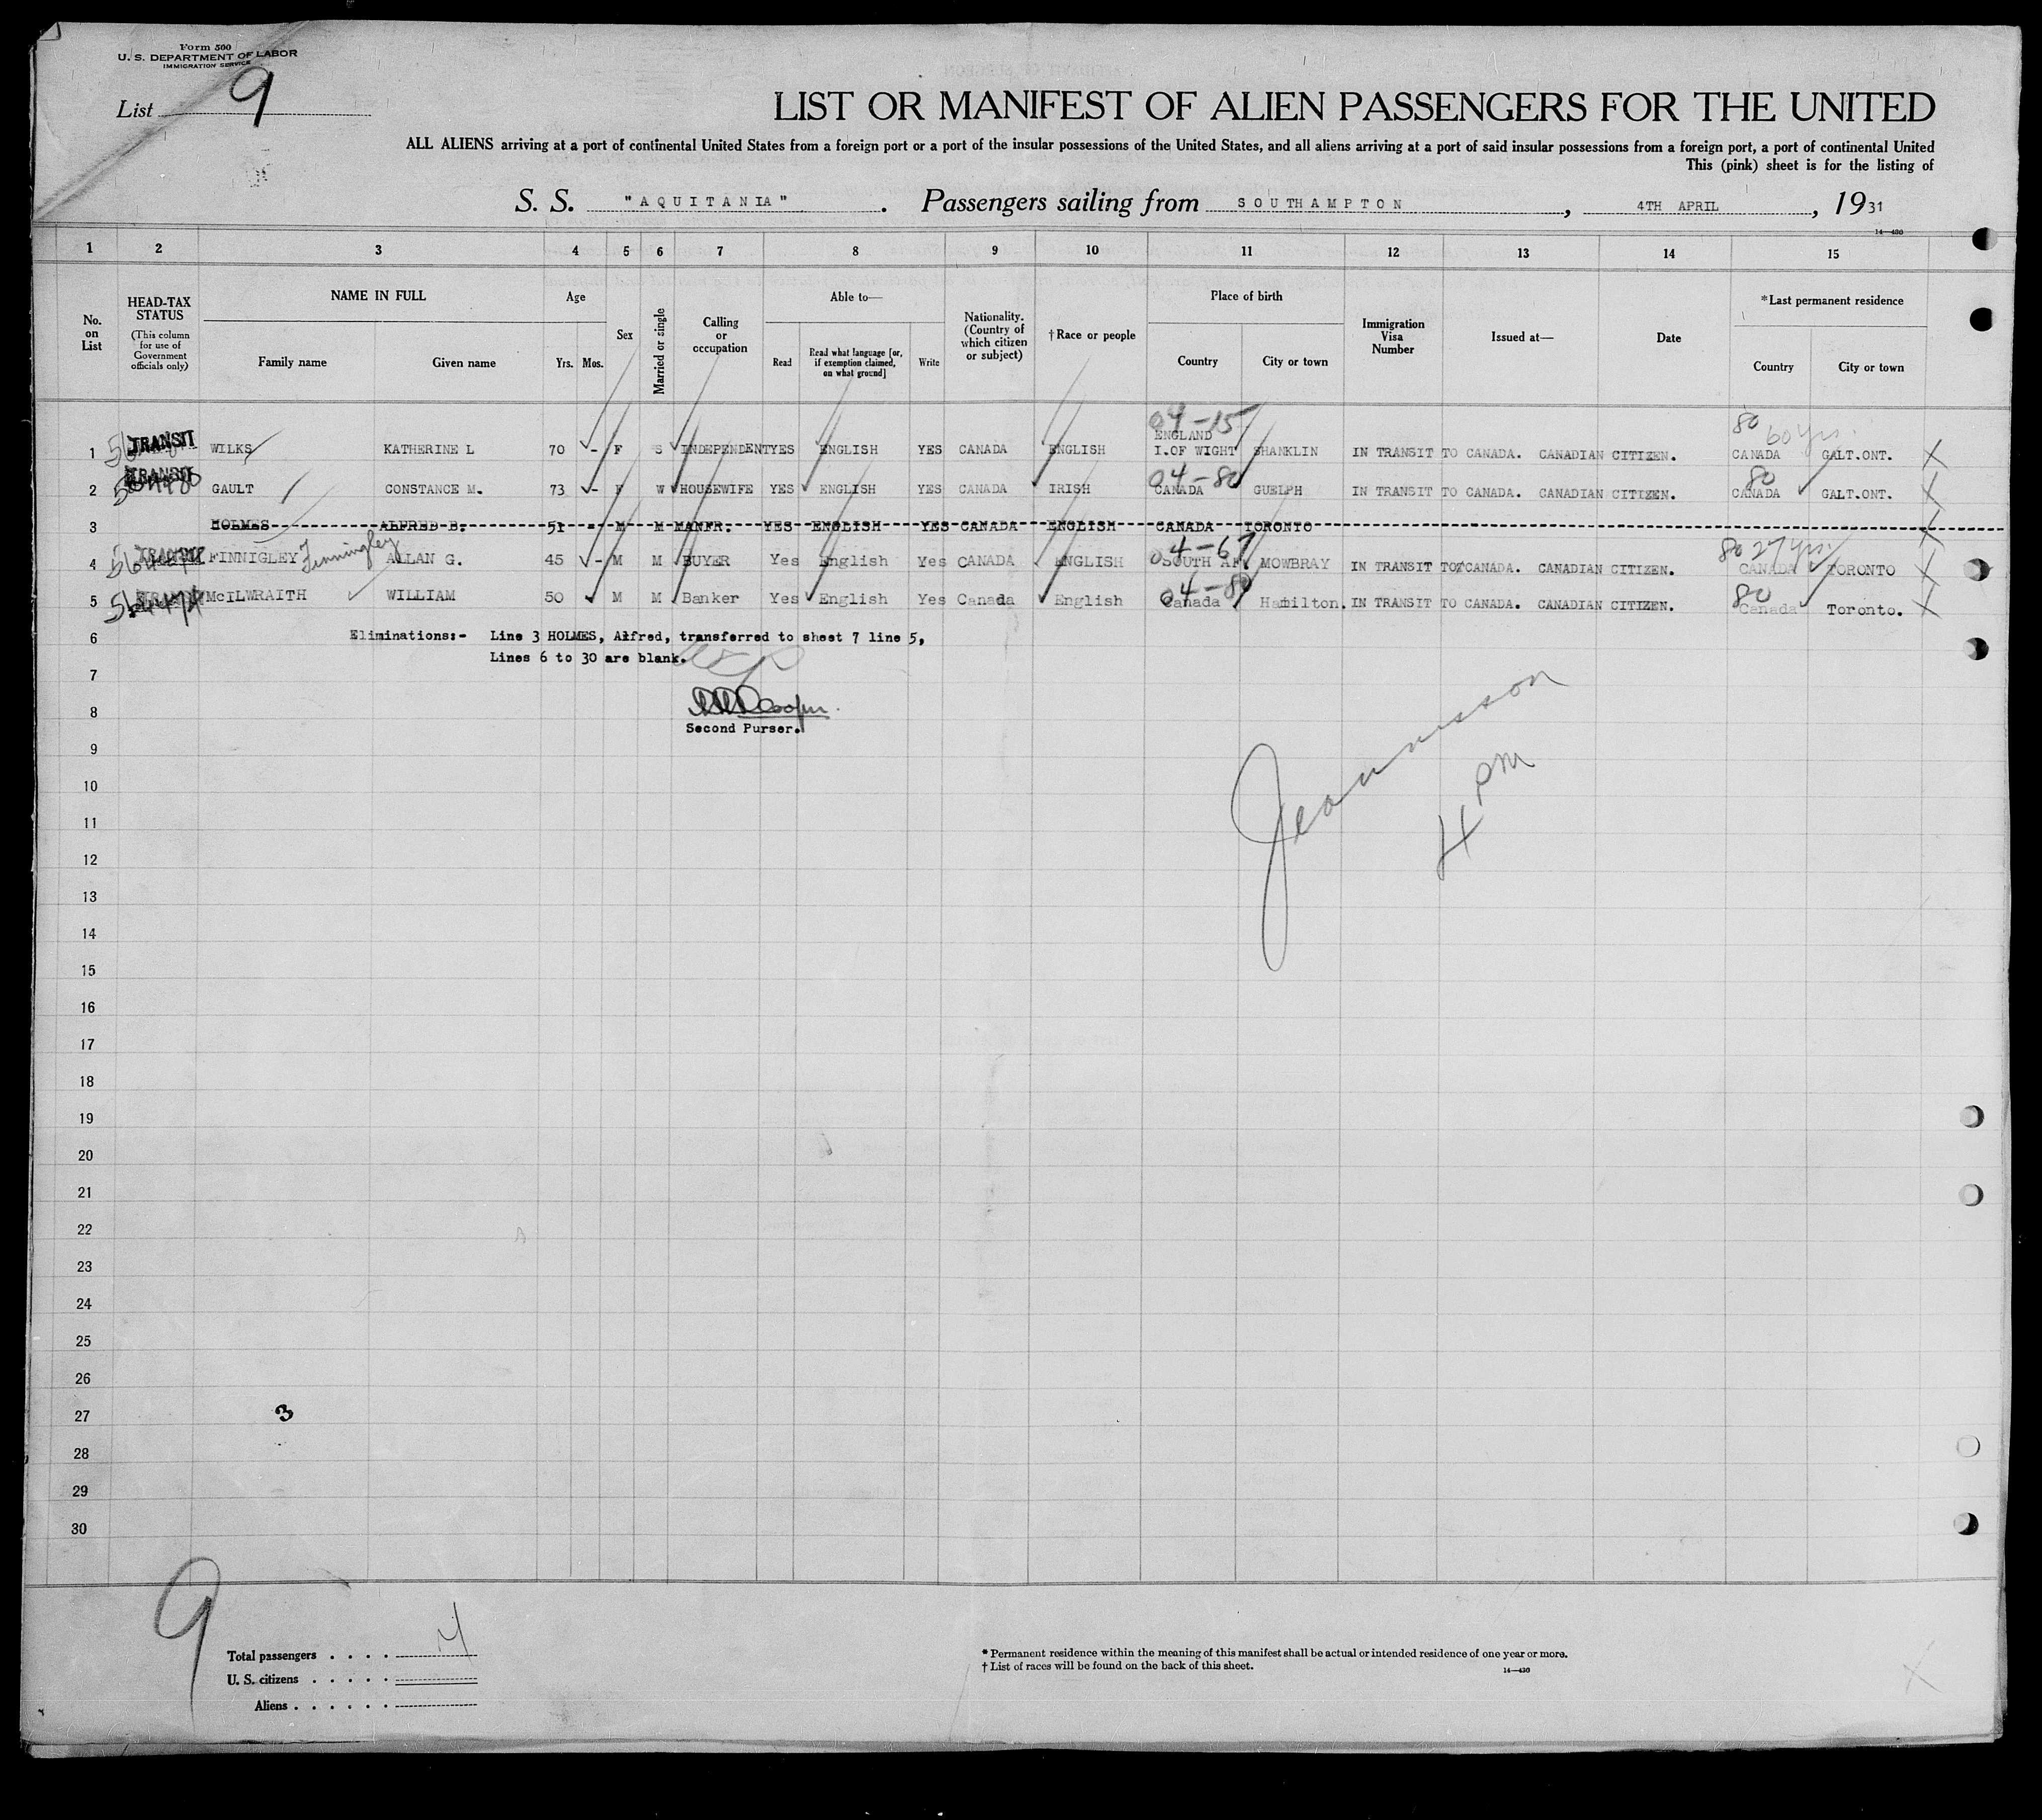 Form 500
U. S. DEPARTMENT OF LABOR
IMMIGRATION SERVICE
List 9
LIST OR MANIFEST OF ALIEN PASSENGERS FOR THE UNITED
ALL ALIENS arriving at a port of continental United States from a foreign port or a port of the insular possessions of the United States, and all aliens arriving at a port of said insular possessions from a foreign port, a port of continental United
This (pink) sheet is for the listing of
S. S. "AQUITANIA". Passengers sailing from SOUTHAMPTON, 4TH APRIL, 1931
14—430
1 2 3 4 5 6 7 8 9 10 11 12 13 14 15
No. on List
HEAD-TAX STATUS (This column for use of Government officials only)
NAME IN FULL
Family name Given name
Age
Yrs. Mos.
Sex
Married or single
Calling or occupation
Able to—
Read Read what language [or, if exemption claimed, on what ground] Write
Nationality. (Country of which citizen or subject)
†Race or people
Place of birth
Country City or town
Immigration Visa Number
Issued at—
Date
*Last permanent residence
Country City or town
04-15 80 60 yrs.
1 TRANSIT WILKS KATHERINE L 70 - F S INDEPENDENT YES ENGLISH YES CANADA ENGLISH ENGLAND I.OF WIGHT SHANKLIN IN TRANSIT TO CANADA. CANADIAN CITIZEN. CANADA GALT.ONT. X
04-80 80
2 TRANSIT GAULT CONSTANCE M. 73 - F W HOUSEWIFE YES ENGLISH YES CANADA IRISH CANADA GUELPH IN TRANSIT TO CANADA. CANADIAN CITIZEN. CANADA GALT.ONT. X
3 HOLMES ALFRED B. 51 - M M MANFR. YES ENGLISH YES CANADA ENGLISH CANADA TORONTO X
04-67 80 27 yrs.
4 FINNIGLEY Finningley ALLAN G. 45 - M M BUYER Yes English Yes CANADA ENGLISH SOUTH AF. MOWBRAY IN TRANSIT TO CANADA. CANADIAN CITIZEN. CANADA TORONTO X
04-80 80
5 McILWRAITH WILLIAM 50 M M Banker Yes English Yes Canada English Canada Hamilton. IN TRANSIT TO CANADA. CANADIAN CITIZEN. Canada Toronto. X
6 Eliminations:- Line 3 HOLMES, Alfred, transferred to sheet 7 line 5,
Lines 6 to 30 are blank.
7
8 Cooper
Second Purser.
9
Jeannisson
4 PM
10
11
12
13
14
15
16
17
18
19
20
21
22
23
24
25
26
27 3
28
29
30
9
Total passengers . . . . 4
U. S. citizens . . . . .
Aliens . . . . . .
* Permanent residence within the meaning of this manifest shall be actual or intended residence of one year or more.
† List of races will be found on the back of this sheet.
14—430